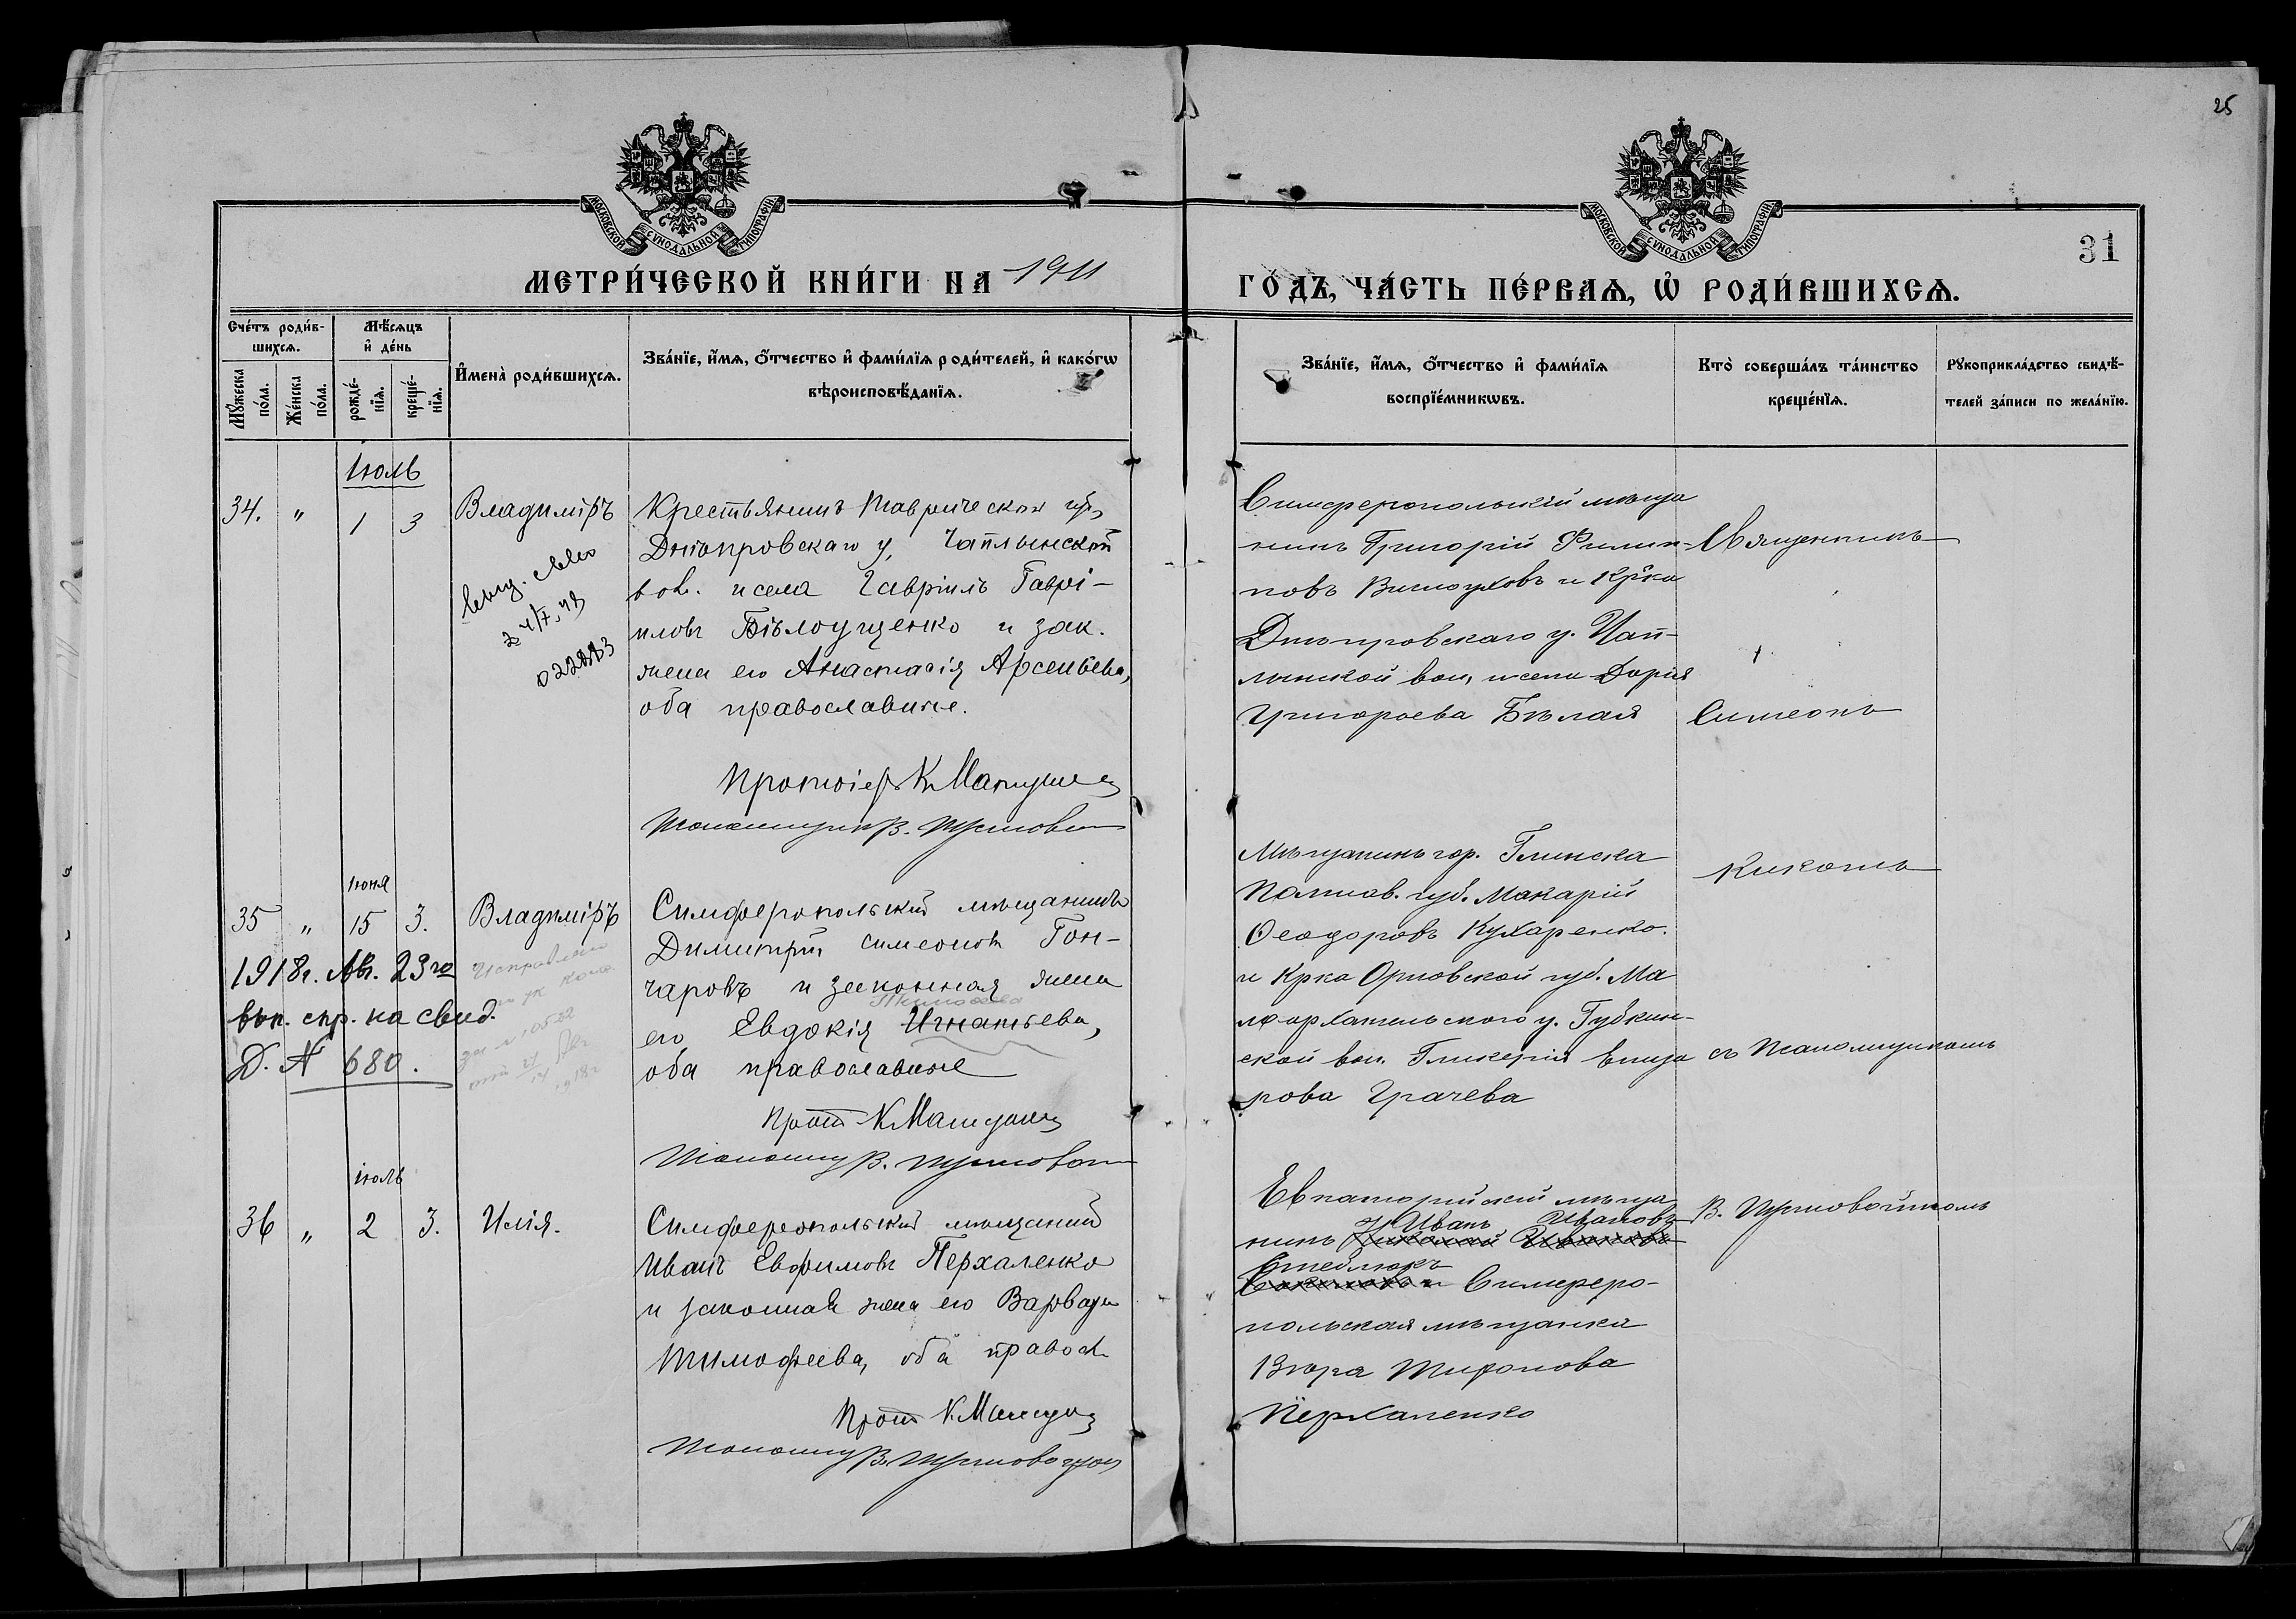 25
31
МОСКОВСКОЙ СѴНОДАЛЬНОЙ ТИПОГРАФІИ
МОСКОВСКОЙ СѴНОДАЛЬНОЙ ТИПОГРАФІИ
МЕТРИ́ЧЕСКОЙ КНИ́ГИ НА 1911
ГО́ДЪ, ЧА́СТЬ ПЕ́РВАѦ, Ѡ҆ РОДИ́ВШИХСѦ.
Сче́тъ роди́в-
шихсѧ.
Мꙋ́жеска
по́ла.
Же́нска
по́ла.
Мѣ́сѧцъ
и҆ де́нь
рожде́-
нїѧ.
креще́-
нїѧ.
И҆мена̀ роди́вшихсѧ.
Зва́нїе, и҆́мѧ, ѻ҆́тчество и҆ фами́лїѧ роди́телей, и҆ како́гѡ
вѣроисповѣ́данїѧ.
Зва́нїе, и҆́мѧ, ѻ҆́тчество и҆ фами́лїѧ
воспрїе́мникѡвъ.
Кто̀ соверша́лъ та́инство
креще́нїѧ.
Рꙋкоприкла́дство свидѣ́-
телей за́писи по жела́нїю.
Іюль
34. " 1 3 Владиміръ
Крестьянинъ Таврической губ,
Днѣпровскаго у, Чаплынской
вол. и села Гавріилъ Гаврі-
иловъ Бѣлоущенко и зак.
жена его Анастасія Арсеньева,
оба православные.
022883
Протоіер К Мап
Псаломщик В.
Симферопольскій мѣща
нинъ Григорій Филип-
повъ Винокуховъ и кр-ка
Днѣпровскаго у. Чап-
лынской вол, и села Дарія
Григорьева Бѣлая
Священникъ
Симеонъ
іюня
35 " 15 3. Владиміръ
1918г. Авг. 23го
вып. спр. на свид.
Д. № 680.
Симферопольскій мѣщанинъ
Димитрій Симеоновъ Гон-
чаровъ и законная жена
его Евдокія Игнатьева,
оба православные
Прот К
Псаломщ В.
Мѣщанинъ гор. Глинска
Полтав. губ. Макарій
Ѳеодоровъ Кухаренко.
и кр-ка Орловской губ. Ма
лоархангельскаго у. Губкин-
ской вол. Гликерія Елиза
рова Грачева
Никонъ
съ Псаломщикомъ
іюль
36 " 2 3. Илія.
Симферопольскій мѣщанинъ
Иванъ Евфимовъ Перхаленко
и законная жена его Варвара
Тимофеева, оба правосл.
Прот К.
Псаломщ В.
Евпаторійскій мѣща
Иванъ Ивановъ
нинъ Николай Ивановъ
Симферо-
польская мѣщанка
Вѣра Тифонова
Перхаленко
В.